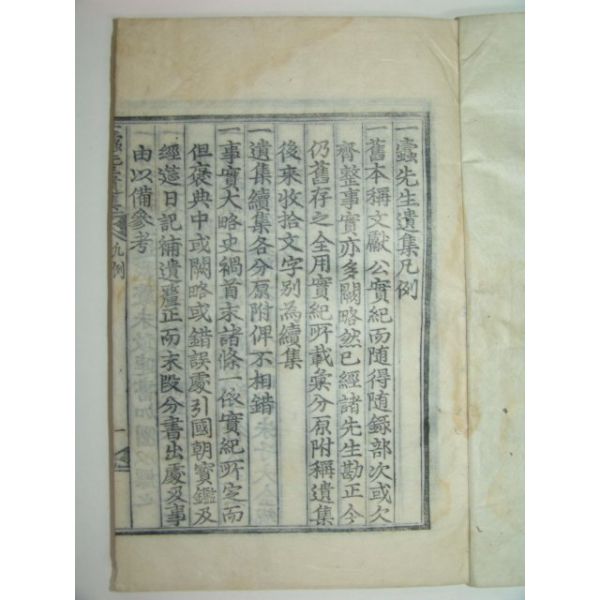 一蠹先生遺集凡例
一舊本稱文獻公實紀而隨得隨錄部次或欠
齊整事實亦多闕略然已經諸先生勘正今
仍舊存之全用實紀所載彙分原附稱遺集
後來收拾文字別為續集
一遺集續集各分原附俾不相錯
一事實大略史禍首末諸條一依實紀所定而
但褒典中或闕略或錯誤處引國朝寶鑑及
經筵日記補遺釐正而末段分書出處及事
由以備參考
一蠹先生遺集 凡例 一